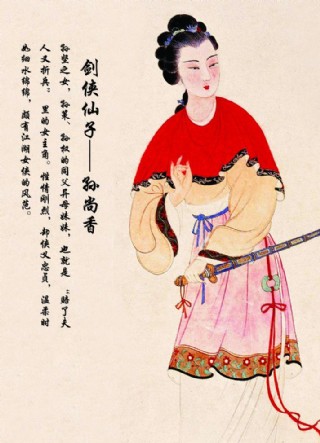 剑侠仙子——孙尚香
孙坚之女，孙策、孙权的同父异母妹妹，也就是“赔了夫
人又折兵”里的女主角。性情刚烈，却侠义忠贞，温柔时
如细水绵绵，颇有江湖女侠的风范。